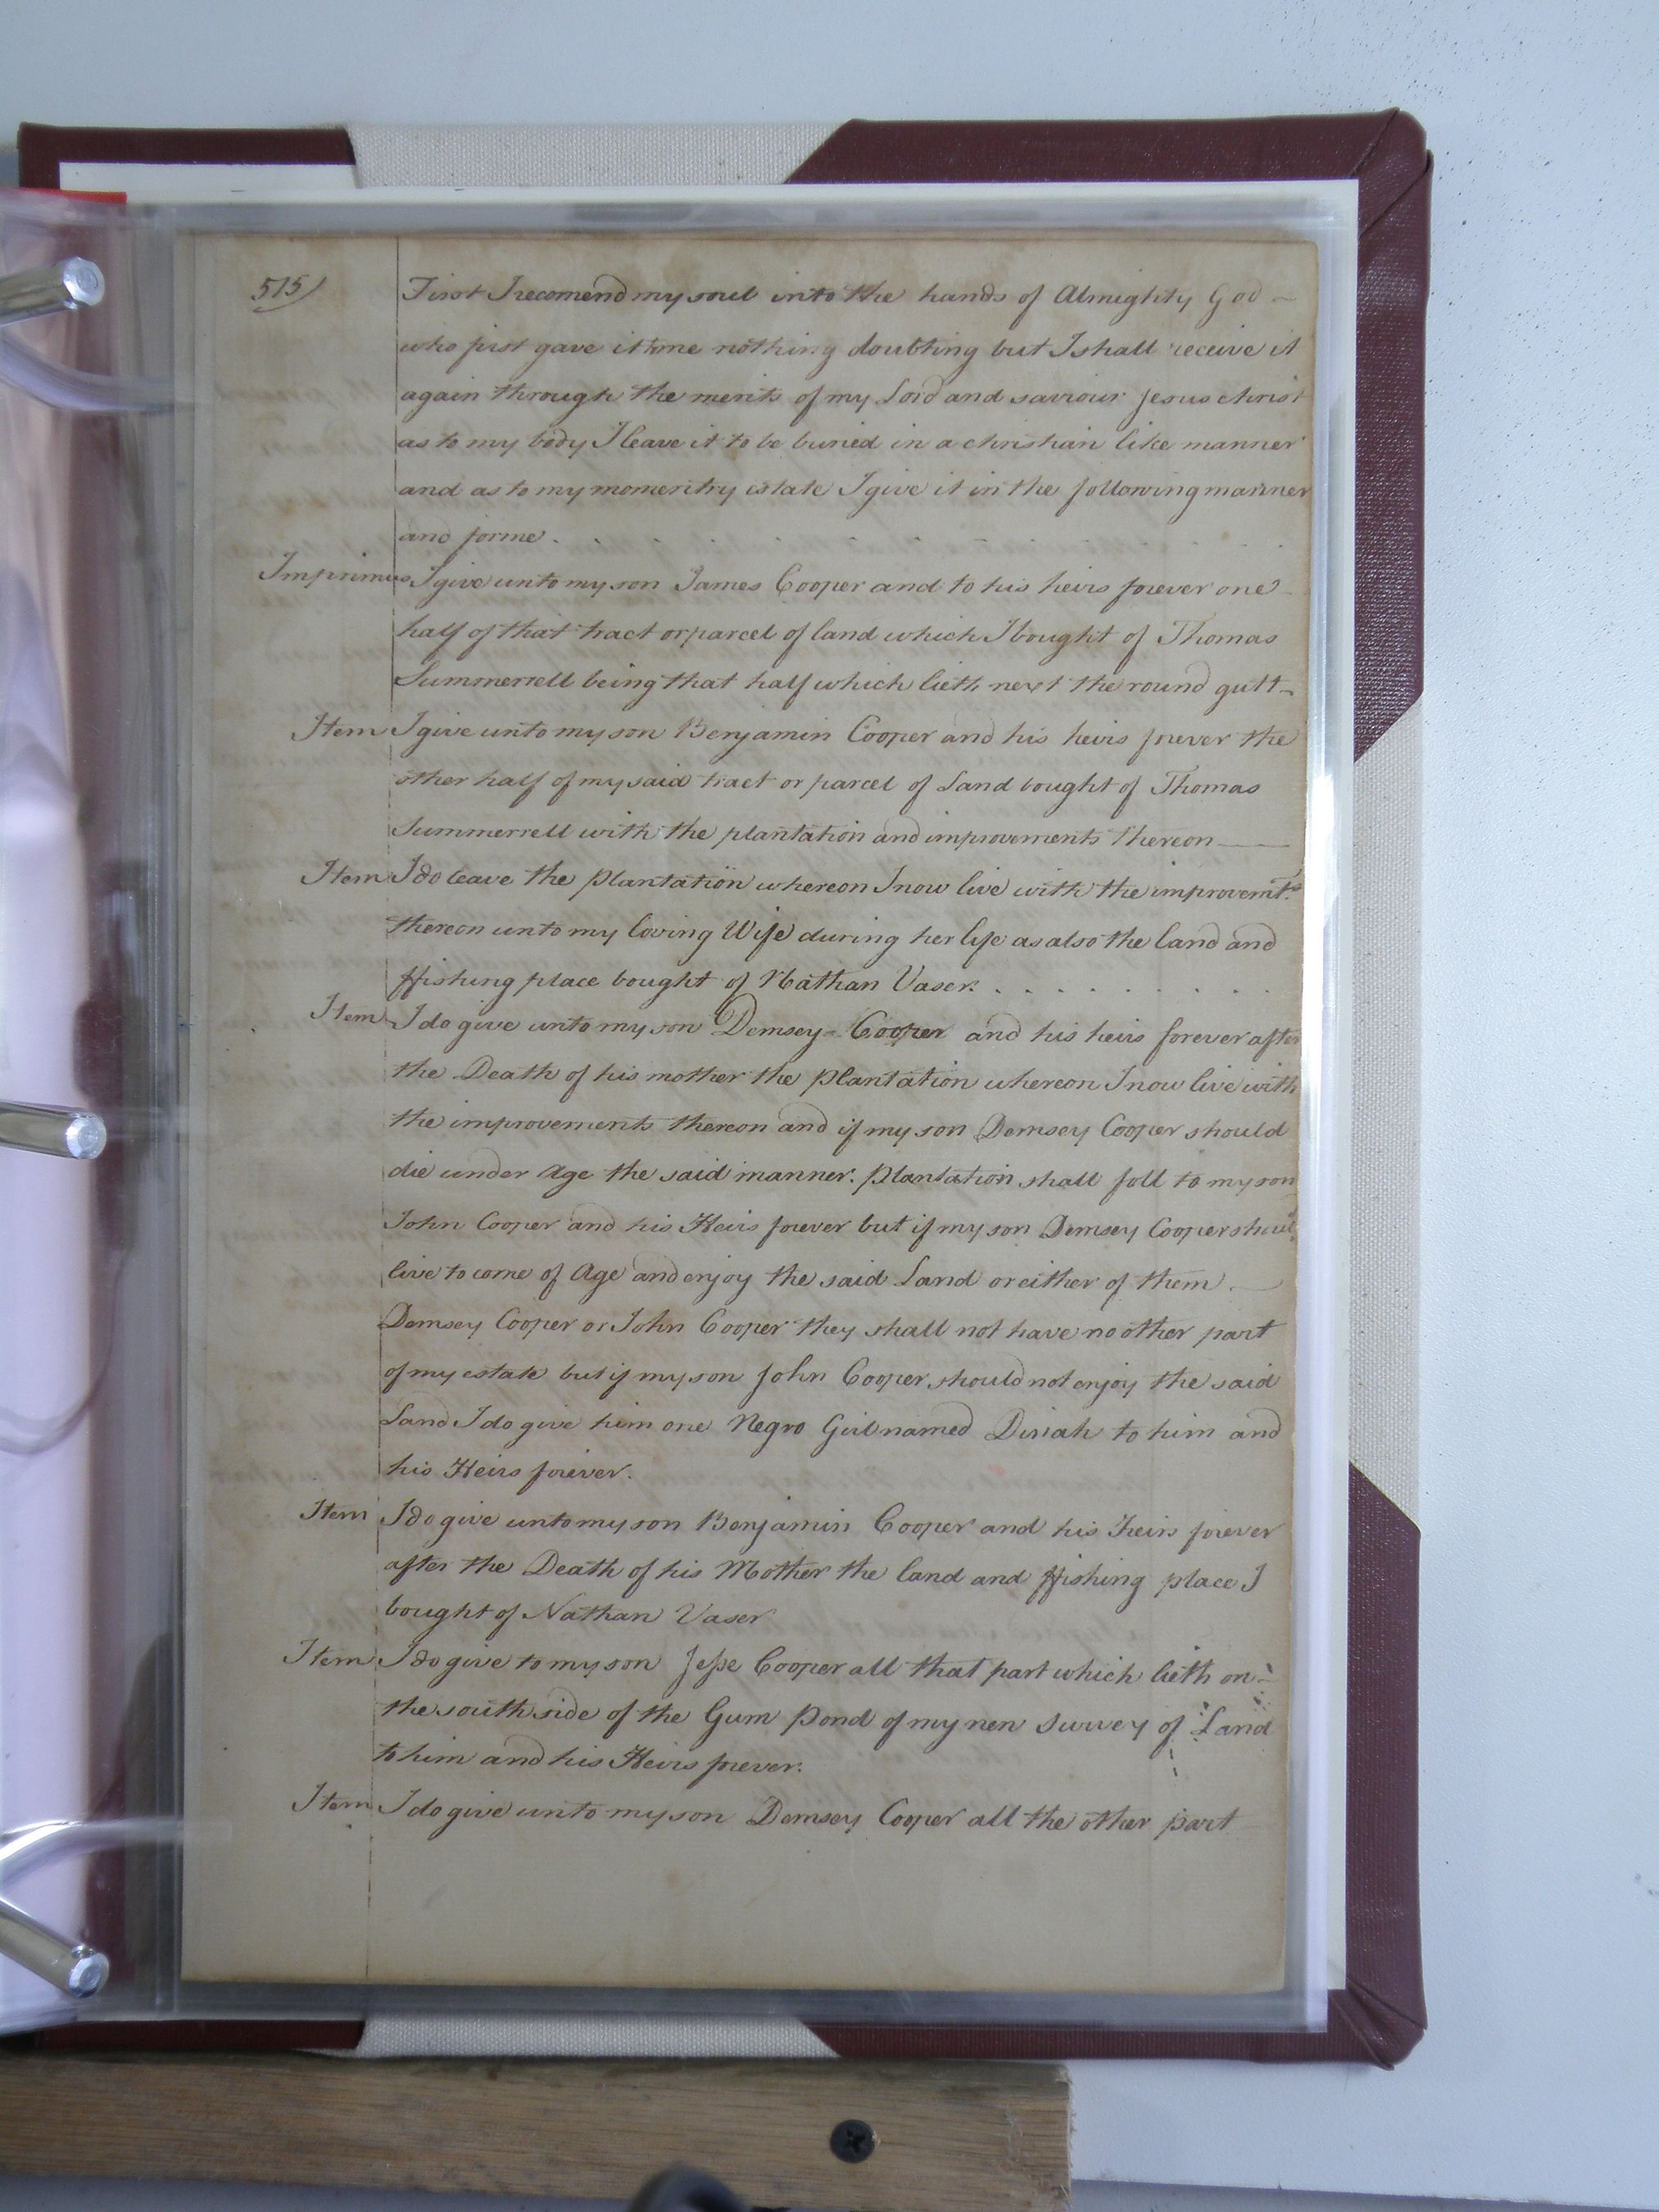 515/
First I recomend my soul into the hands of Almighty God
who first gave it to me nothing doubting but I shall receive it
again through the merits of my Lord and saviour Jesus christ
as to my body I leave it to be buried in a christian like manner
and as to my momentry estate I give it in the following manner
and forme.
Imprimus I give unto my son James Cooper and to his heirs forever one
half of that tract or parcel of land which I bought of Thomas
Summerrell being that half which lieth next the round gutt
Item I give unto my son Benjamin Cooper and his heirs forever the
other half of my said tract or parcel of Land bought of Thomas
Summerrell with the plantation and improvements thereon
Item I do leave the Plantation whereon I now live with the improvemts
thereon unto my loving Wife during her life as also the land and
ffishing place bought of Nathan Vaser.
Item I do give unto my son Demsey Cooper and his heirs forever after
the Death of his mother the Plantation whereon I now live with
the improvements thereon and if my son Demsey Cooper should
die under Age the said manner. Plantation shall foll to my son
John Cooper and his Heirs forever but if my son Demsey Cooper should
live to come of Age and enjoy the said Land or either of them
Demsey Cooper or John Cooper they shall not have no other part
of my estate but if my son John Cooper should not enjoy the said
Land I do give him one Negro Girl named Dinah to him and
his Heirs forever.
Item I do give unto my son Benjamin Cooper and his Heirs forever
after the Death of his Mother the land and ffishing place I
bought of Nathan Vaser
Item I do give to my son Jesse Cooper all that part which lieth on
the south side of the Gum Pond of my nen Survey of Land
to him and his Heirs forever.
Item I do give unto my son Demsey Cooper all the other part